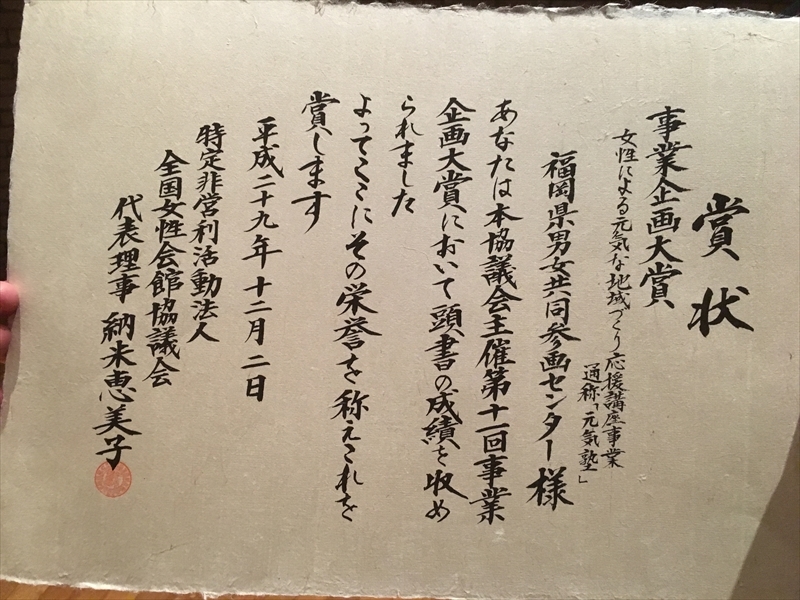 賞状
事業企画大賞
女性による元気な地域づくり応援講座事業
通称「元気塾」
福岡県男女共同参画センター様
あなたは本協議会主催第十一回事業
企画大賞において頭書の成績を収め
られました
よってここにその栄誉を称えこれを
賞します
平成二十九年十二月二日
特定非営利活動法人
全国女性会館協議会
代表理事 納米恵美子